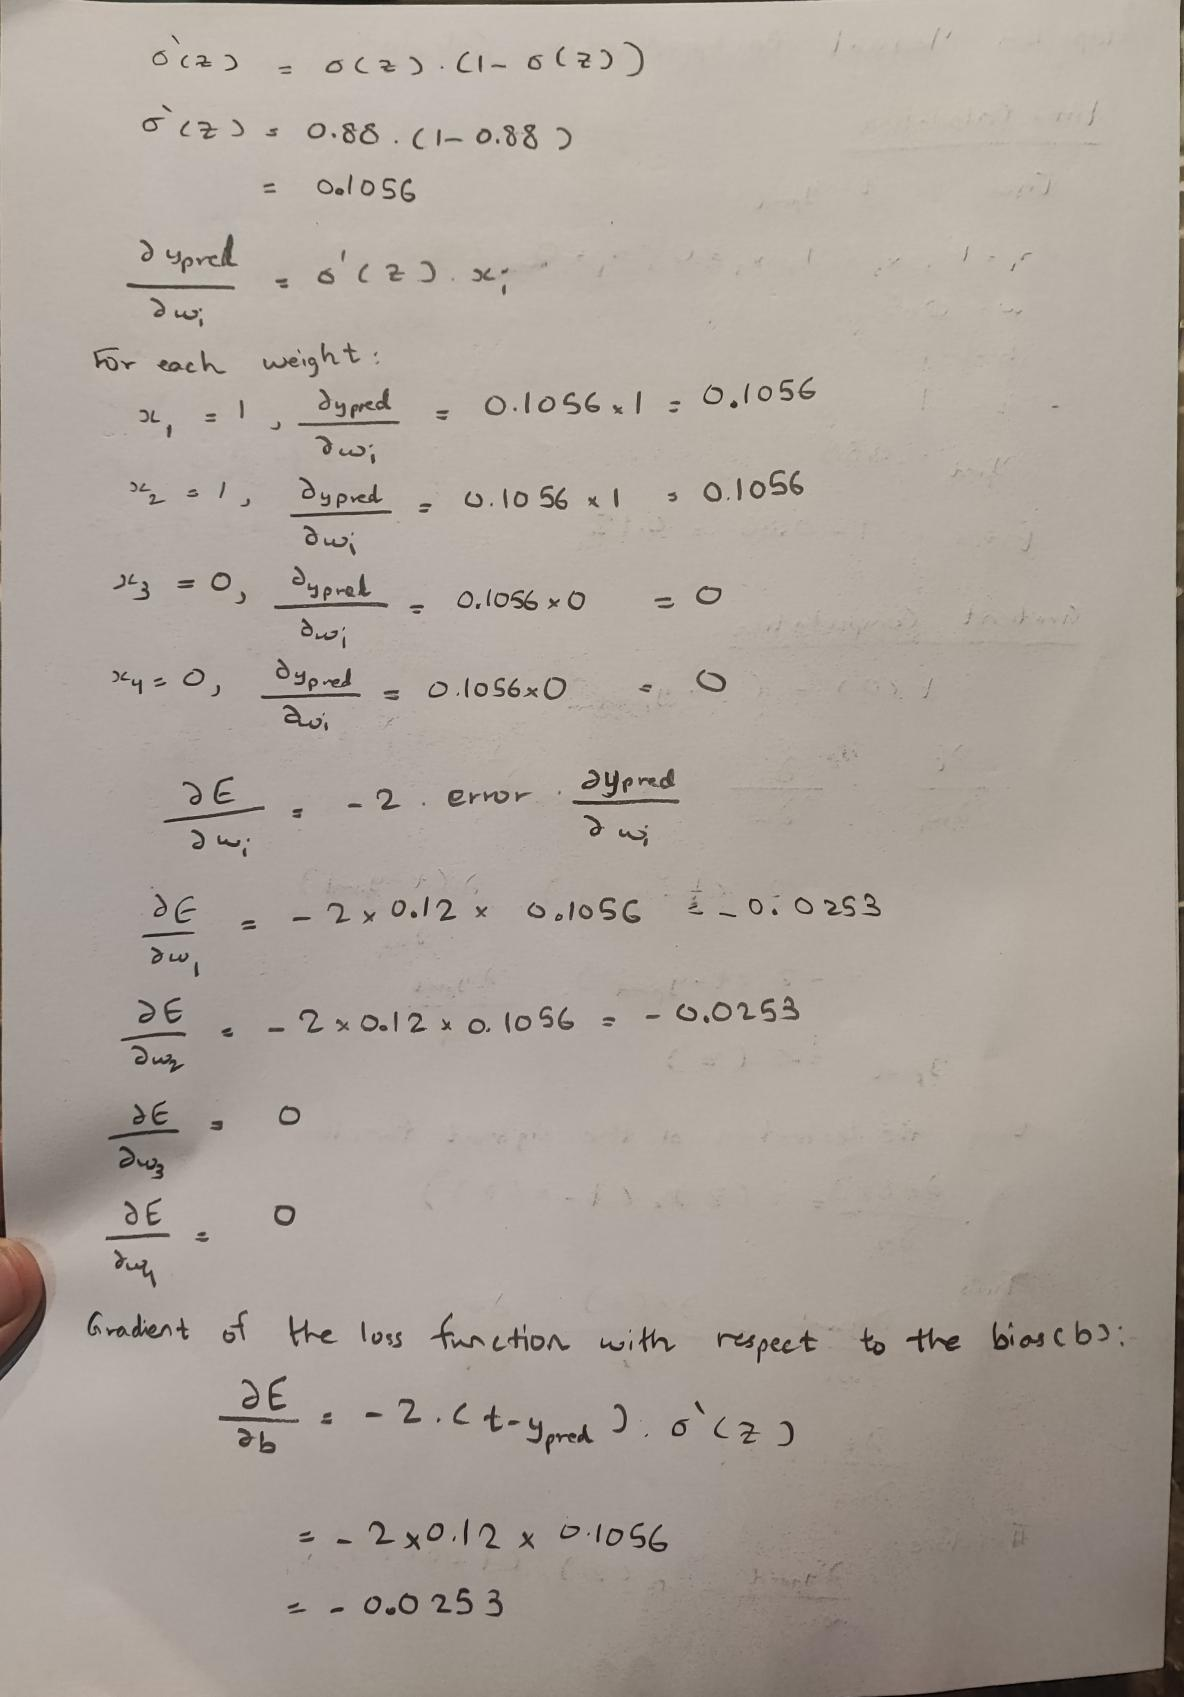 σ'(z) = σ(z).(1-σ(z))
σ'(z) = 0.88.(1-0.88)
= 0.1056
∂ypred/∂wi = σ'(z).xi
For each weight:
x1 = 1, ∂ypred/∂wi = 0.1056×1 = 0.1056
x2 = 1, ∂ypred/∂wi = 0.1056×1 = 0.1056
x3 = 0, ∂ypred/∂wi = 0.1056×0 = 0
x4 = 0, ∂ypred/∂wi = 0.1056×0 = 0
∂E/∂wi = -2.error.∂ypred/∂wi
∂E/∂w1 = -2×0.12×0.1056 = -0.0253
∂E/∂w2 = -2×0.12×0.1056 = -0.0253
∂E/∂w3 = 0
∂E/∂w4 = 0
Gradient of the loss function with respect to the bias(b):
∂E/∂b = -2.(t-ypred).σ'(z)
= -2×0.12×0.1056
= -0.0253